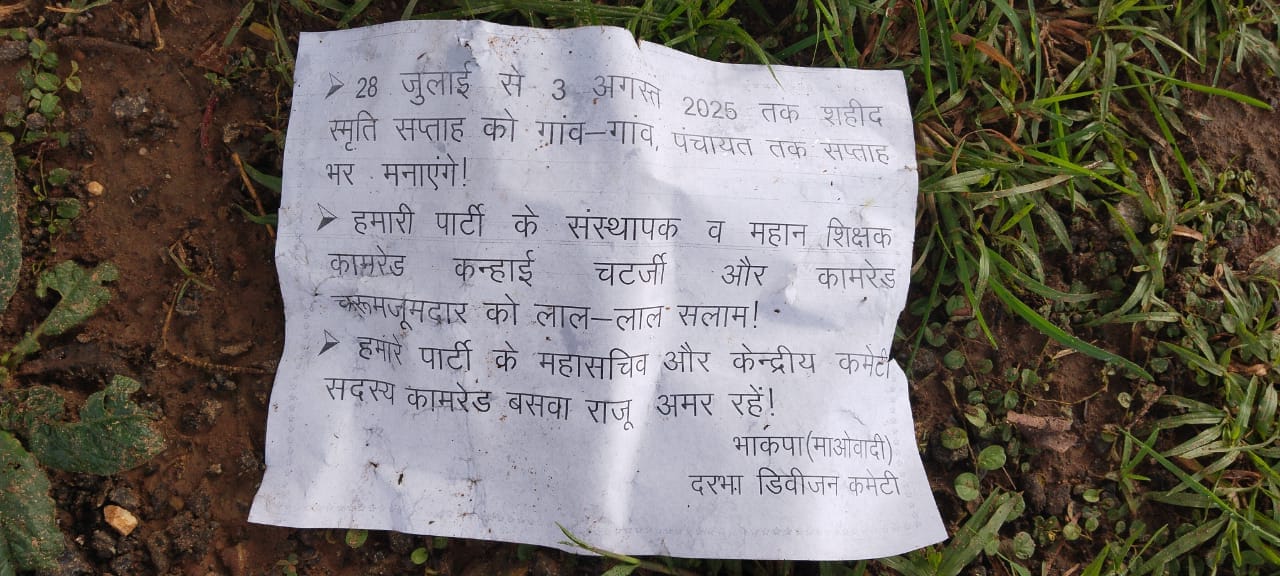 ➢ 28 जुलाई से 3 अगस्त 2025 तक शहीद
स्मृति सप्ताह को गांव–गांव, पंचायत तक सप्ताह
भर मनाएंगे!
➢ हमारी पार्टी के संस्थापक व महान शिक्षक
कामरेड कन्हाई चटर्जी और कामरेड
चारूमजूमदार को लाल–लाल सलाम!
➢ हमारे पार्टी के महासचिव और केन्द्रीय कमेटी
सदस्य कामरेड बसवा राजू अमर रहें!
भाकपा(माओवादी)
दरभा डिवीजन कमेटी